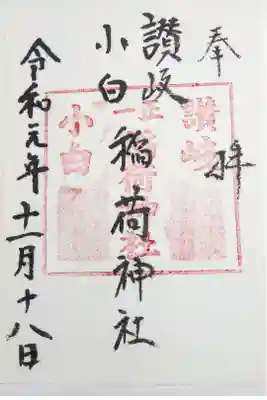 奉拝
讃岐
小白稲荷神社
令和元年十一月十八日
讃岐
正一
小白